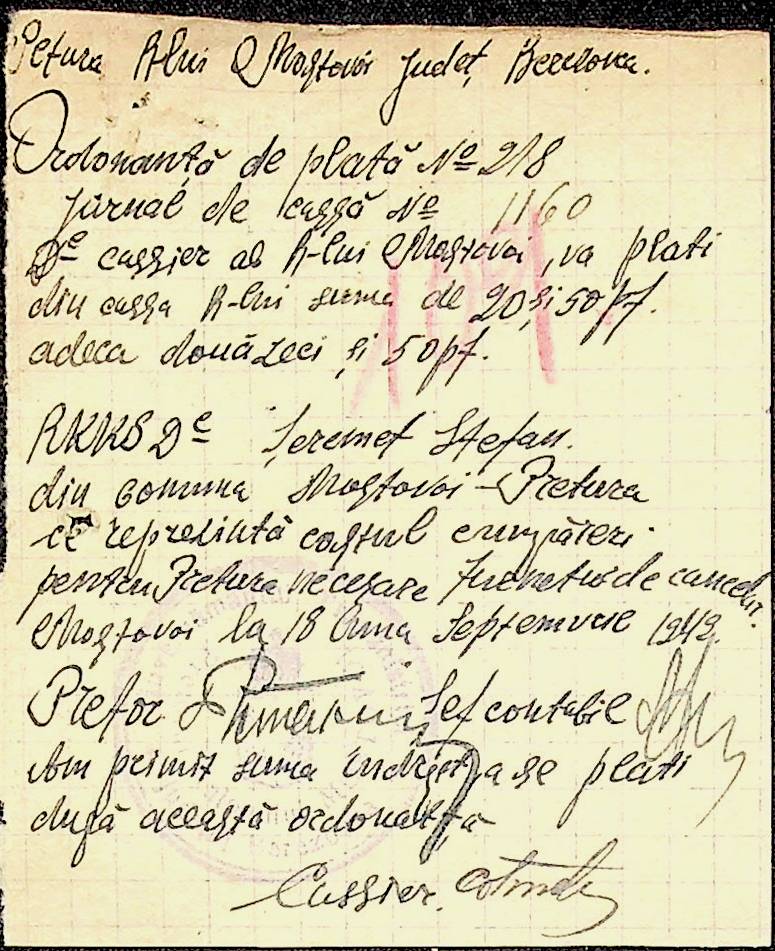 Pretura R-lui Mostovoi Județ Berezovca.
Ordonanță de plată No 218
Jurnal de cassă No 1160
De cassier al R-lui Mostovoi, va plati
din cassa R-lui suma de 20 și 50 pf.
adeca douăzeci și 50 pf.
RKKS De Șeremet Ștefan.
din comuna Mostovoi – Pretura
ce reprezintă costul cumpăreri
pentru Pretura necesare furnituri de cancelar.
Mostovoi la 18 luna Septemvrie 1942.
Pretor Șef contabil
Am primit suma indrept a se plati
după această ordonanță
Cassier